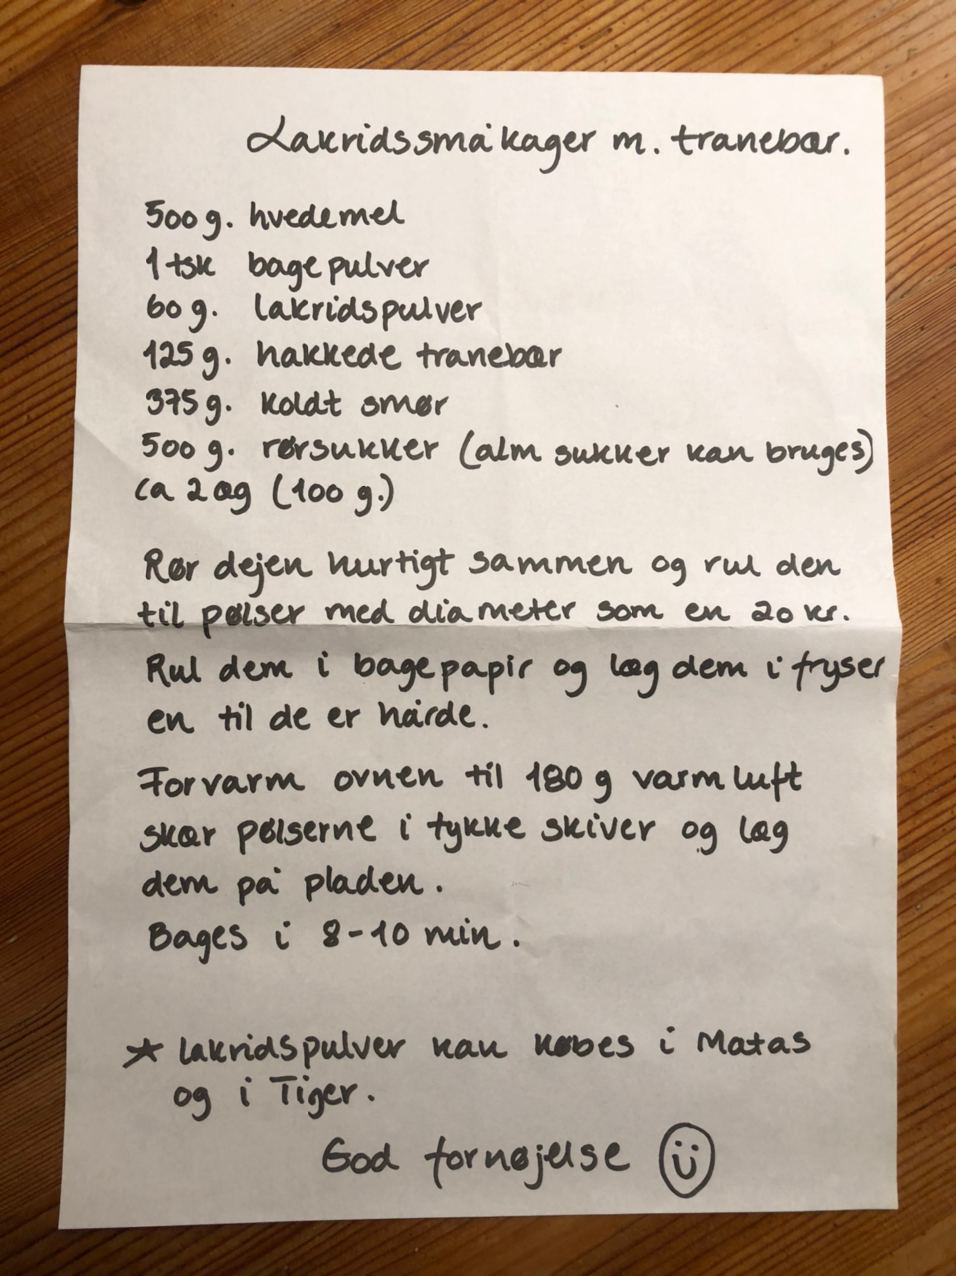 Lakridssmåkager m. tranebær.
500 g. hvedemel
1 tsk bagepulver
60 g. lakridspulver
125 g. hakkede tranebær
375 g. koldt smør
500 g. rørsukker (alm sukker kan bruges)
ca 2 æg (100 g.)
Rør dejen hurtigt sammen og rul den
til pølser med diameter som en 20 kr.
Rul dem i bagepapir og læg dem i fryser
en til de er hårde.
Forvarm ovnen til 180 g varmluft
skær pølserne i tykke skiver og læg
dem på pladen.
Bages i 8-10 min.
* lakridspulver kan købes i Matas
og i Tiger.
God fornøjelse